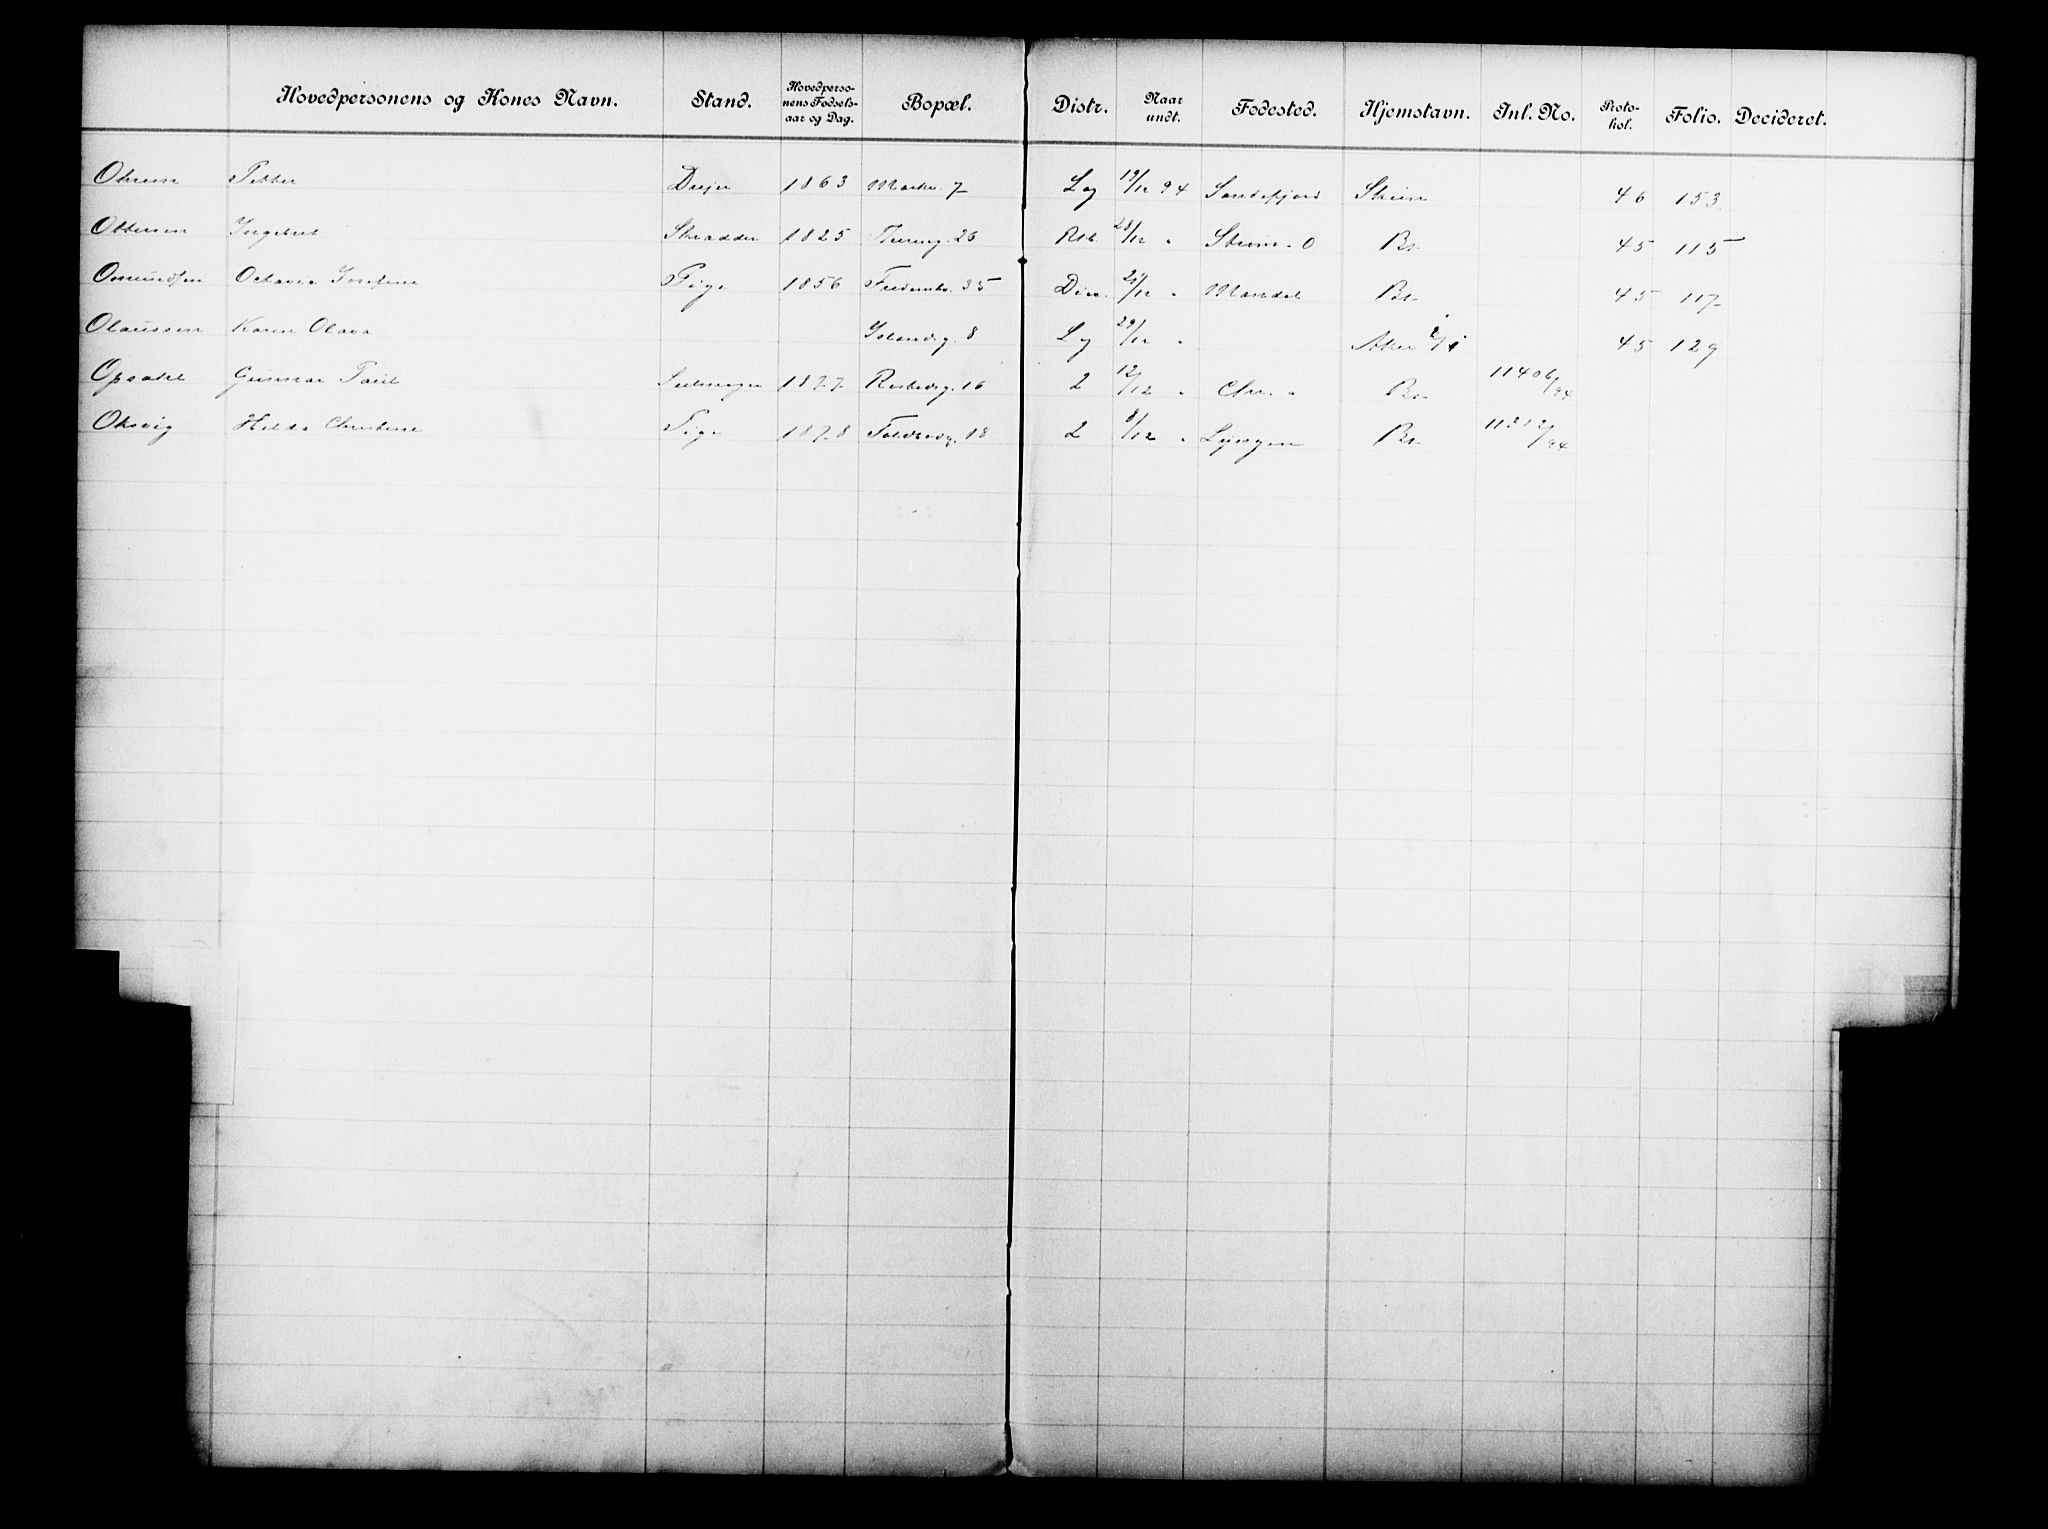 Hovedpersonens og Kones Navn. Stand. Hovedpersonens Fødselsaar og Dag. Bopæl. Distr. Naar undt. Fødested. Hjemstavn. Inl. No. Protokol. Folio. Decideret.
Petter Drejer 1863 Markv. 7 Lg 19/12 94 Sandefjord 46 153
Ottersen Ingebret Skrædder 1825 26 28/12 " Br. 45 115
Omundsen Octavia Josefine Pige 1856 35 /12 " Mandal Br. 45 117
Olaussen Karen Olava 8 Lg 29/12 " Aker 45 129
Opsahl Gunnar Paul 1877 16 2 12/12 " Chr. " Br. 11406/94
Oksvig Hilda Christine Pige 1878 18 2 8/12 " Lyngen Br. 11312/94